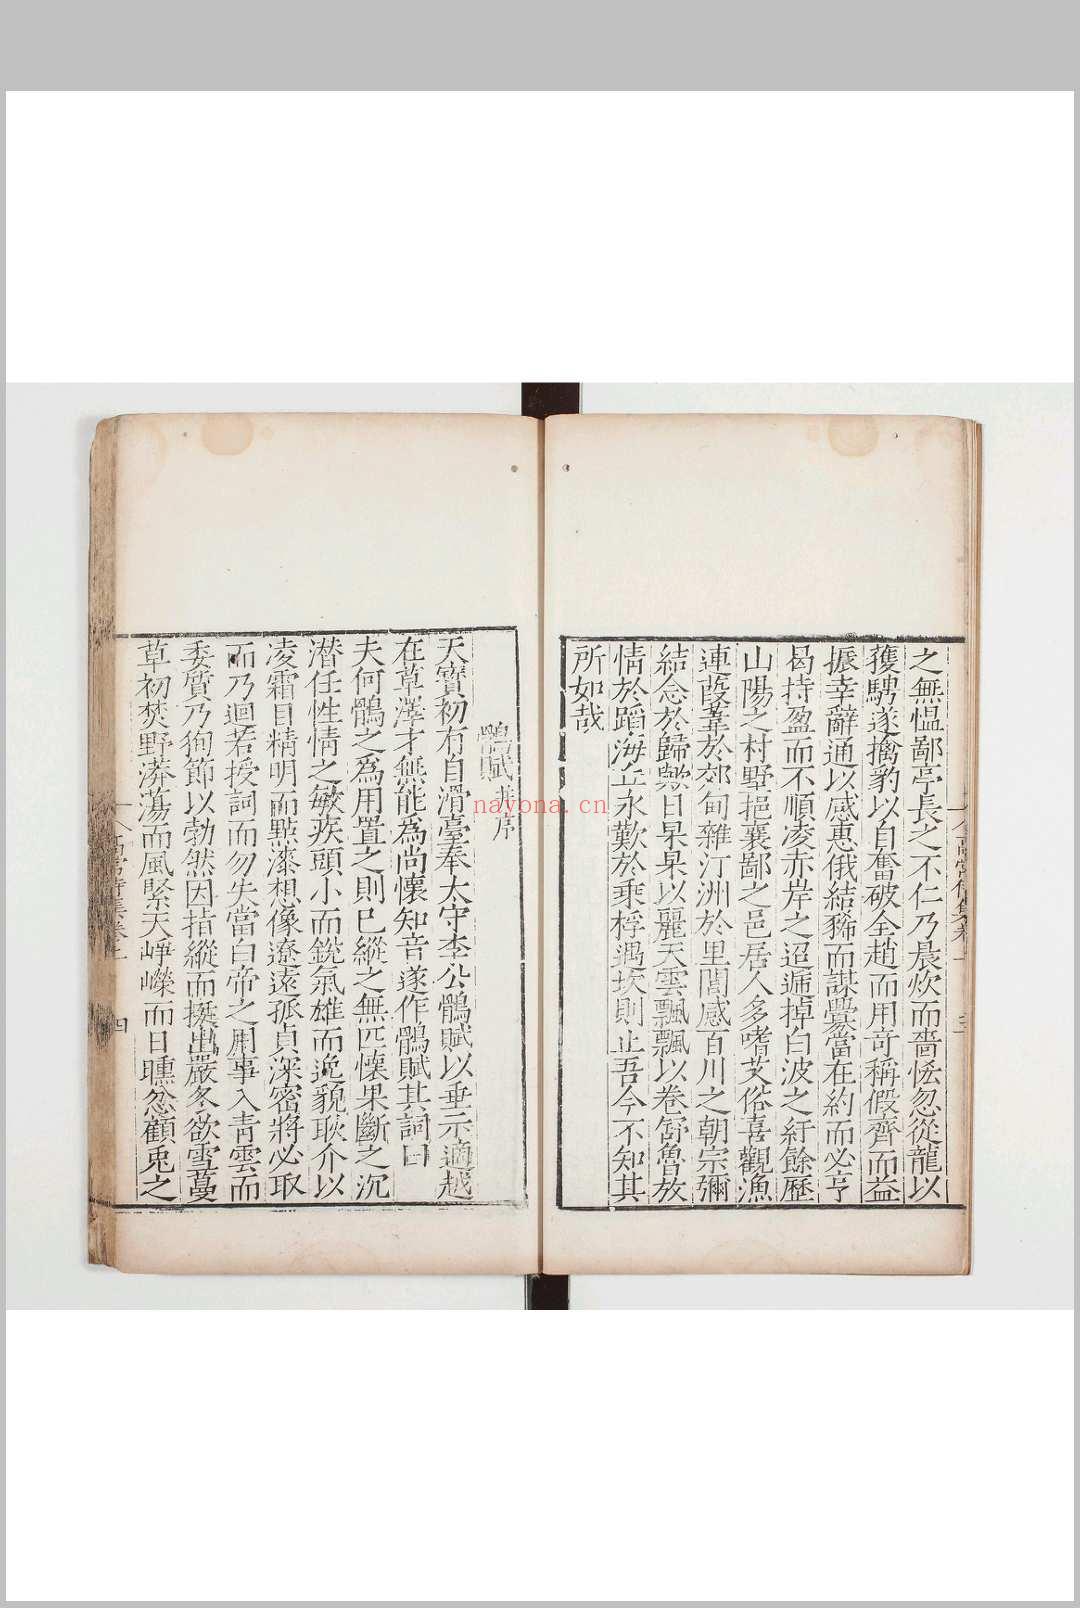 之無慍鄙亭長之不仁乃晨炊而嗇恡忽從龍以
獲騁遂擒豹以自奮破全趙而用奇稱假齊而益
振幸辭通以感惠俄結豨而謀釁當在約而必亨
曷持盈而不順凌赤岸之迢遞掉白波之紆餘歷
山陽之村墅挹襄鄙之邑居人多嗜艾俗喜觀漁
連葭葦於郊甸雜汀洲於里閭感百川之朝宗彌
結念於歸歟日杲杲以麗天雲飄飄以卷舒魯放
情於蹈海丘永歎於乘桴遇坎則止吾今不知其
所如哉
鶻賦并序
天寶初有自滑臺奉太守李公鶻賦以垂示適越
在草澤才無能為尚懷知音遂作鶻賦其詞曰
夫何鶻之為用置之則已縱之無匹懷果斷之沉
潛任性情之敏疾頭小而銳氣雄而逸貌耿介以
凌霜目精明而點漆想像遼遠孤貞深密將必取
而乃迴若授詞而勿失當白帝之用事入青雲而
委質乃狥節以勃然因指縱而挺出嚴冬欲雪蔓
草初焚野漭蕩而風緊天崢嶸而日曛忿顧兎之
高常侍集卷十 四
nayona.cn